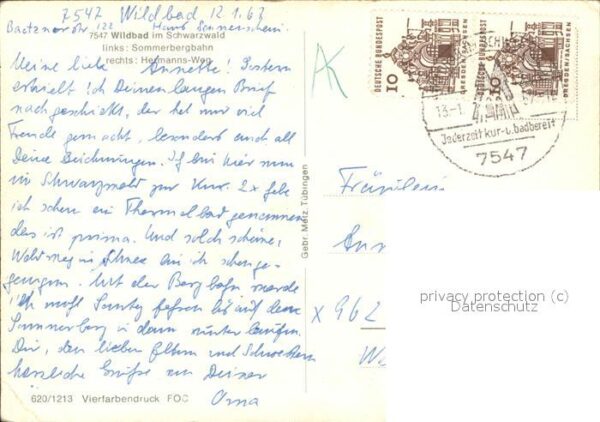 7547 Wildbad 12.1.67
Baetznerstr 122 Haus Sonnenschein
7547 Wildbad im Schwarzwald
links: Sommerbergbahn
rechts: Hermanns-Weg
Meine liebe Annette! Gestern
erhielt ich Deinen langen Brief
nachgeschickt, der hat mir viel
Freude gemacht, besonders auch all
Deine Zeichnungen. Ich bin hier nun
im Schwarzwald zur Kur. 2x habe
ich schon ein Thermalbad genommen
das ist prima. Und solch schöne
Waldwege im Schnee bin ich schon ge-
gangen. Mit der Bergbahn werde
ich mal fahren bis auf den
Sommerberg u. dann runter laufen.
Dir, den lieben Eltern und Schwestern
herzliche Grüße von Deiner
Oma
620/1213 Vierfarbendruck FOC
Gebr. Metz, Tübingen
DEUTSCHE BUNDESPOST
10
DRESDEN/SACHSEN
10
DRESDEN/SACHSEN
13.-1.
Jederzeit kur- u. badbereit
7547
Fräulein
Ann
x 962
privacy protection (c)
Datenschutz